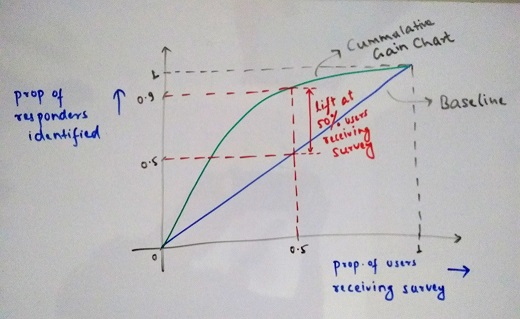 Cummulative
Gain Chart
1
0.9
0.5
0
0.5
1
prop of
responders
identified
Lift at
50% users
receiving
survey
Baseline
prop. of users
receiving survey